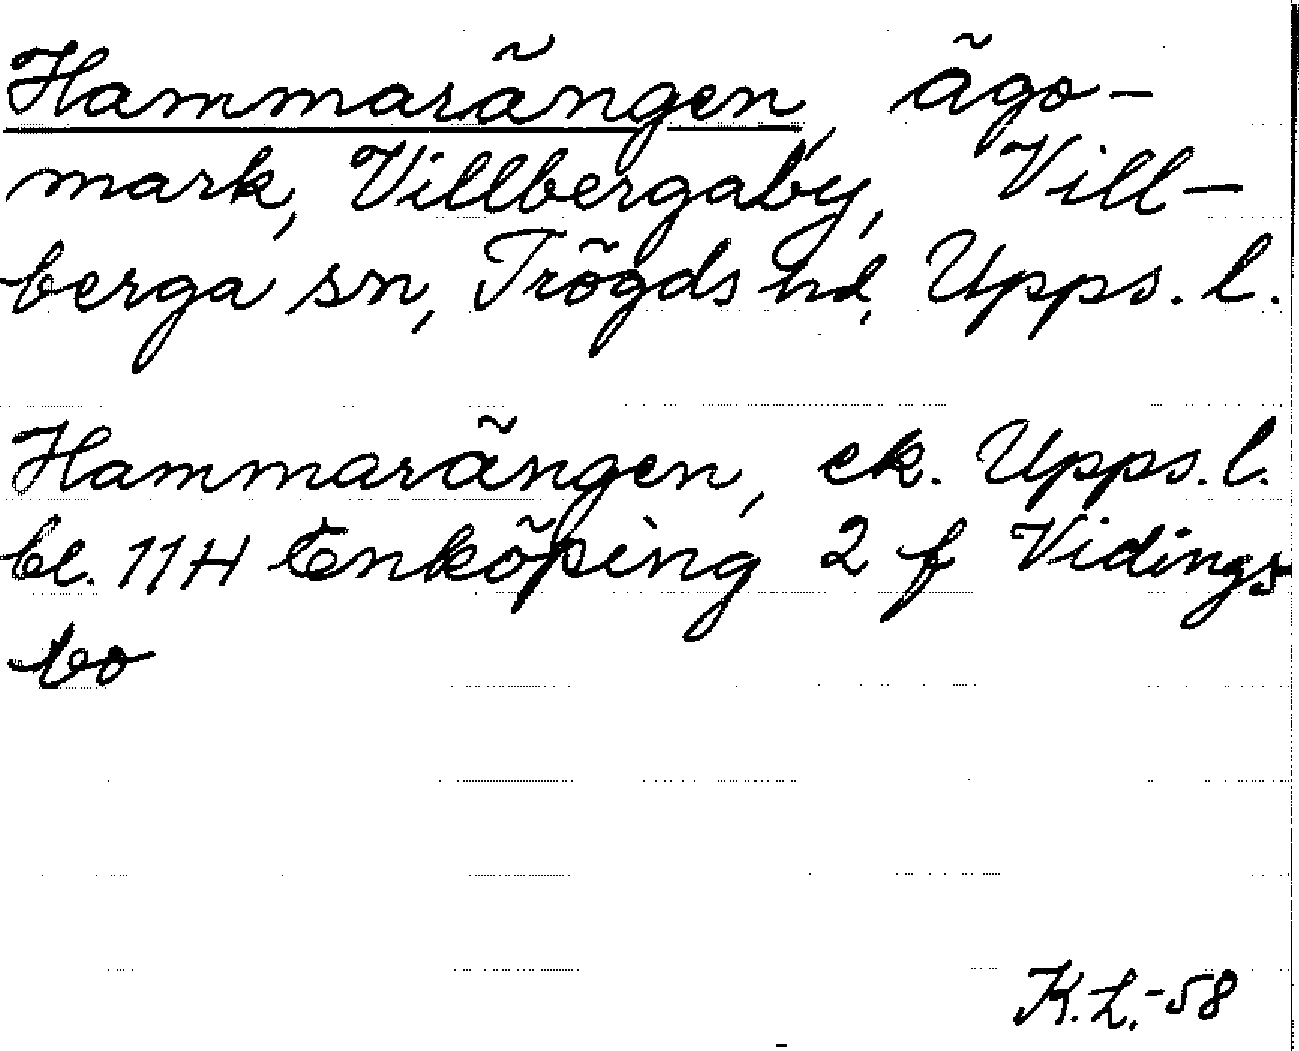 Hammarängen, ägo-
mark, Villbergaby, Vill-
berga sn, Trögds hd, Upps. l.
Hammarängen, ek. Upps. l.
bl. 11H Enköping 2 f Vidings
bo
K.L.-58